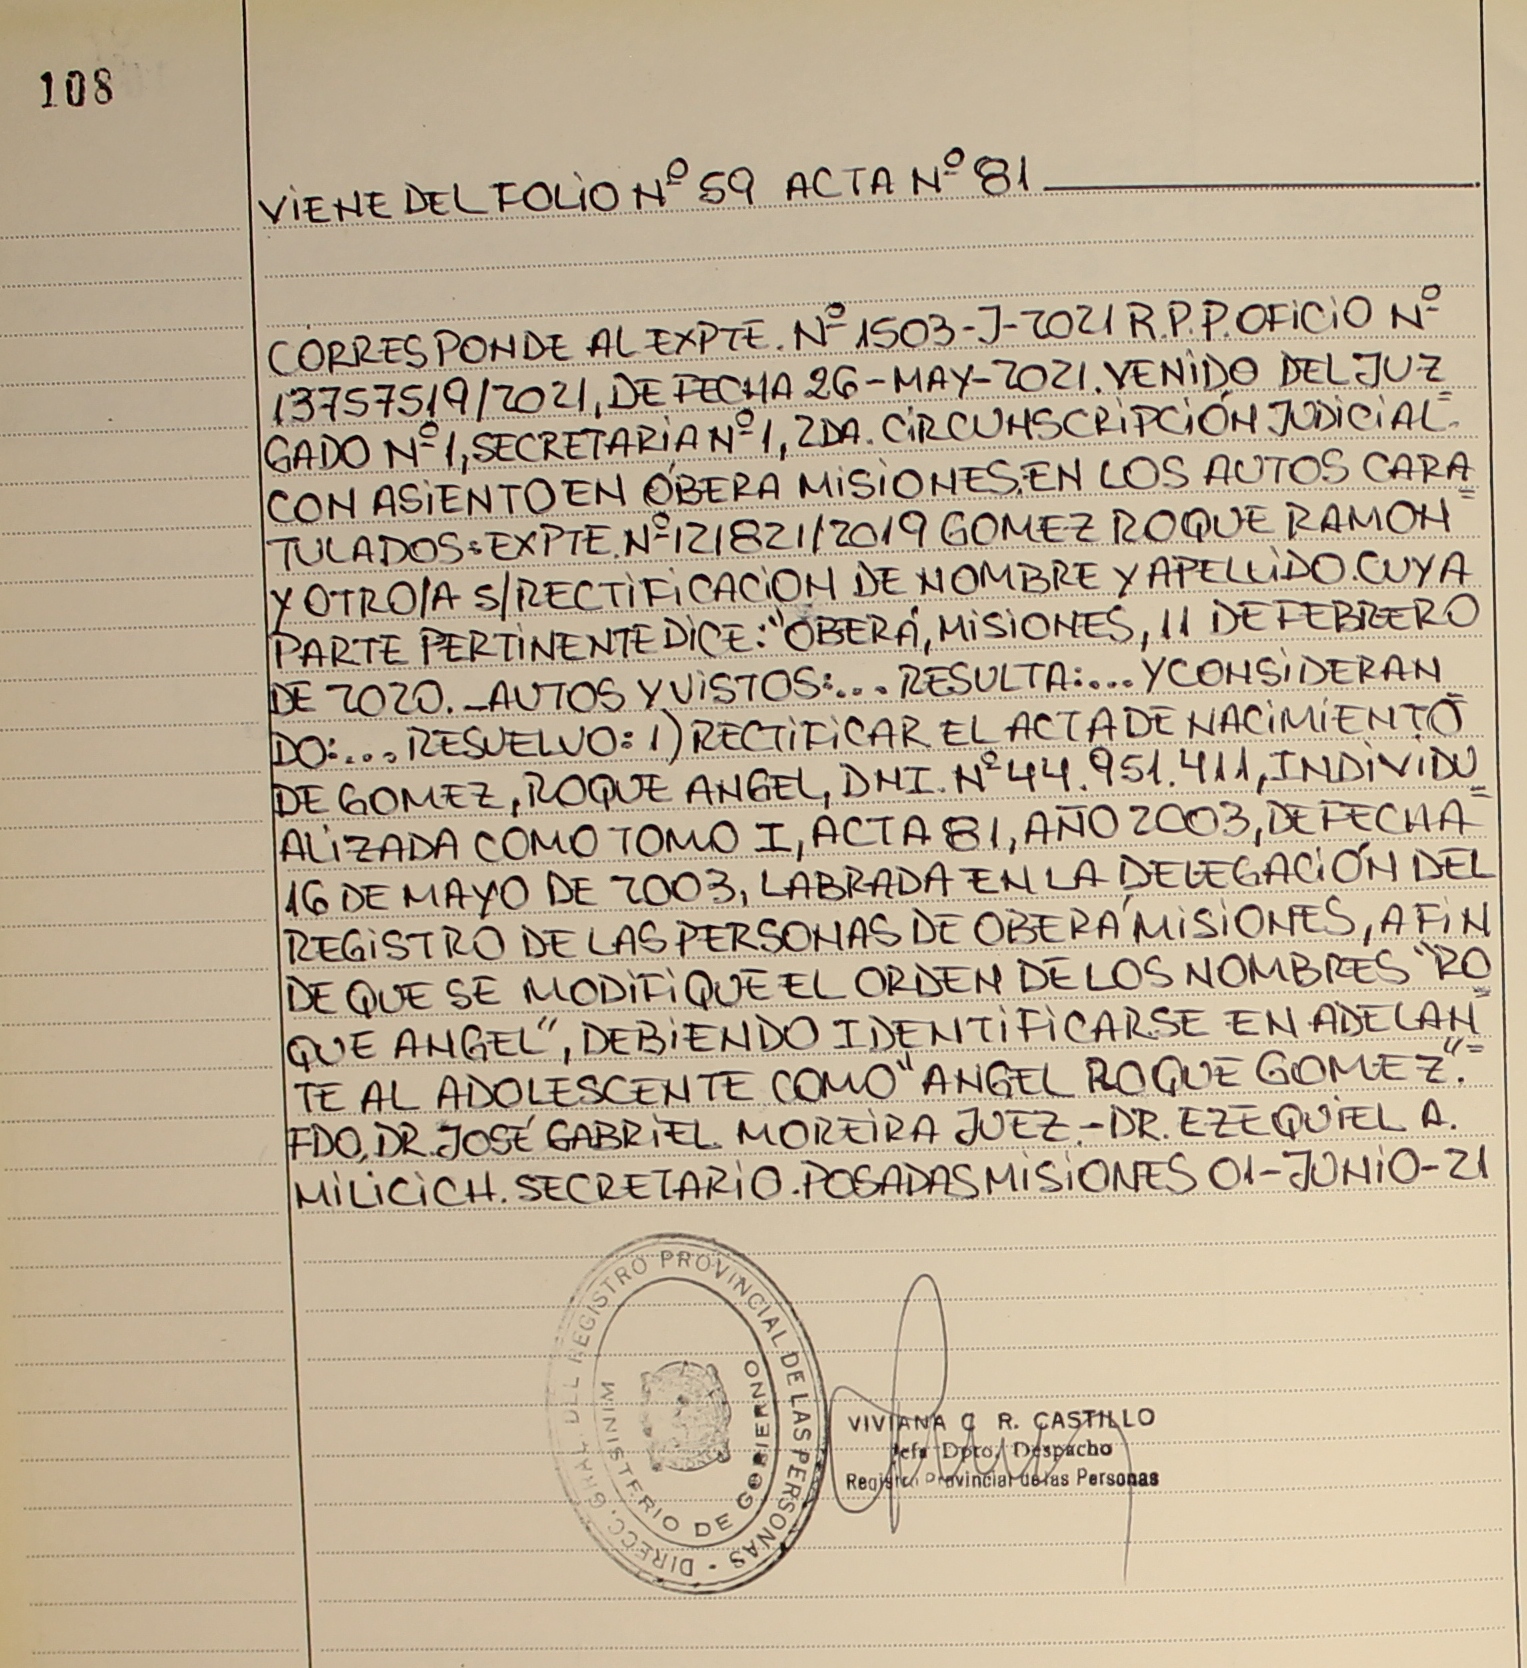 108
VIENE DEL FOLIO Nº 59 ACTA Nº 81
CORRESPONDE AL EXPTE. Nº 1503-J-2021 R.P.P. OFICIO Nº
13757519/2021, DE FECHA 26-MAY-2021. VENIDO DEL JUZ=
GADO Nº 1, SECRETARIA Nº 1, 2DA. CIRCUNSCRIPCIÓN JUDICIAL.
CON ASIENTO EN ÓBERA MISIONES. EN LOS AUTOS CARA=
TULADOS: EXPTE. Nº 121821/2019 GOMEZ ROQUE RAMON
Y OTRO/A S/RECTIFICACION DE NOMBRE Y APELLIDO. CUYA
PARTE PERTINENTE DICE: "OBERÁ, MISIONES, 11 DE FEBRERO
DE 2020. _ AUTOS Y VISTOS:... RESULTA:... Y CONSIDERAN=
DO:... RESUELVO: 1) RECTIFICAR EL ACTA DE NACIMIENTO
DE GOMEZ, ROQUE ANGEL, DNI. Nº 44.951.411, INDIVIDU=
ALIZADA COMO TOMO I, ACTA 81, AÑO 2003, DE FECHA
16 DE MAYO DE 2003, LABRADA EN LA DELEGACIÓN DEL
REGISTRO DE LAS PERSONAS DE OBERÁ MISIONES, A FIN
DE QUE SE MODIFIQUE EL ORDEN DE LOS NOMBRES "RO=
QUE ANGEL", DEBIENDO IDENTIFICARSE EN ADELAN=
TE AL ADOLESCENTE COMO "ANGEL ROQUE GOMEZ".
FDO, DR. JOSÉ GABRIEL MOREIRA JUEZ.-DR. EZEQUIEL A.
MILICICH. SECRETARIO. POSADAS MISIONES 01-JUNIO-21
DIRECC. GRAL. DEL REGISTRO PROVINCIAL DE LAS PERSONAS -
MINISTERIO DE GOBIERNO
VIVIANA C R. CASTILLO
Jefa Dpto. Despacho
Registro Provincial de las Personas